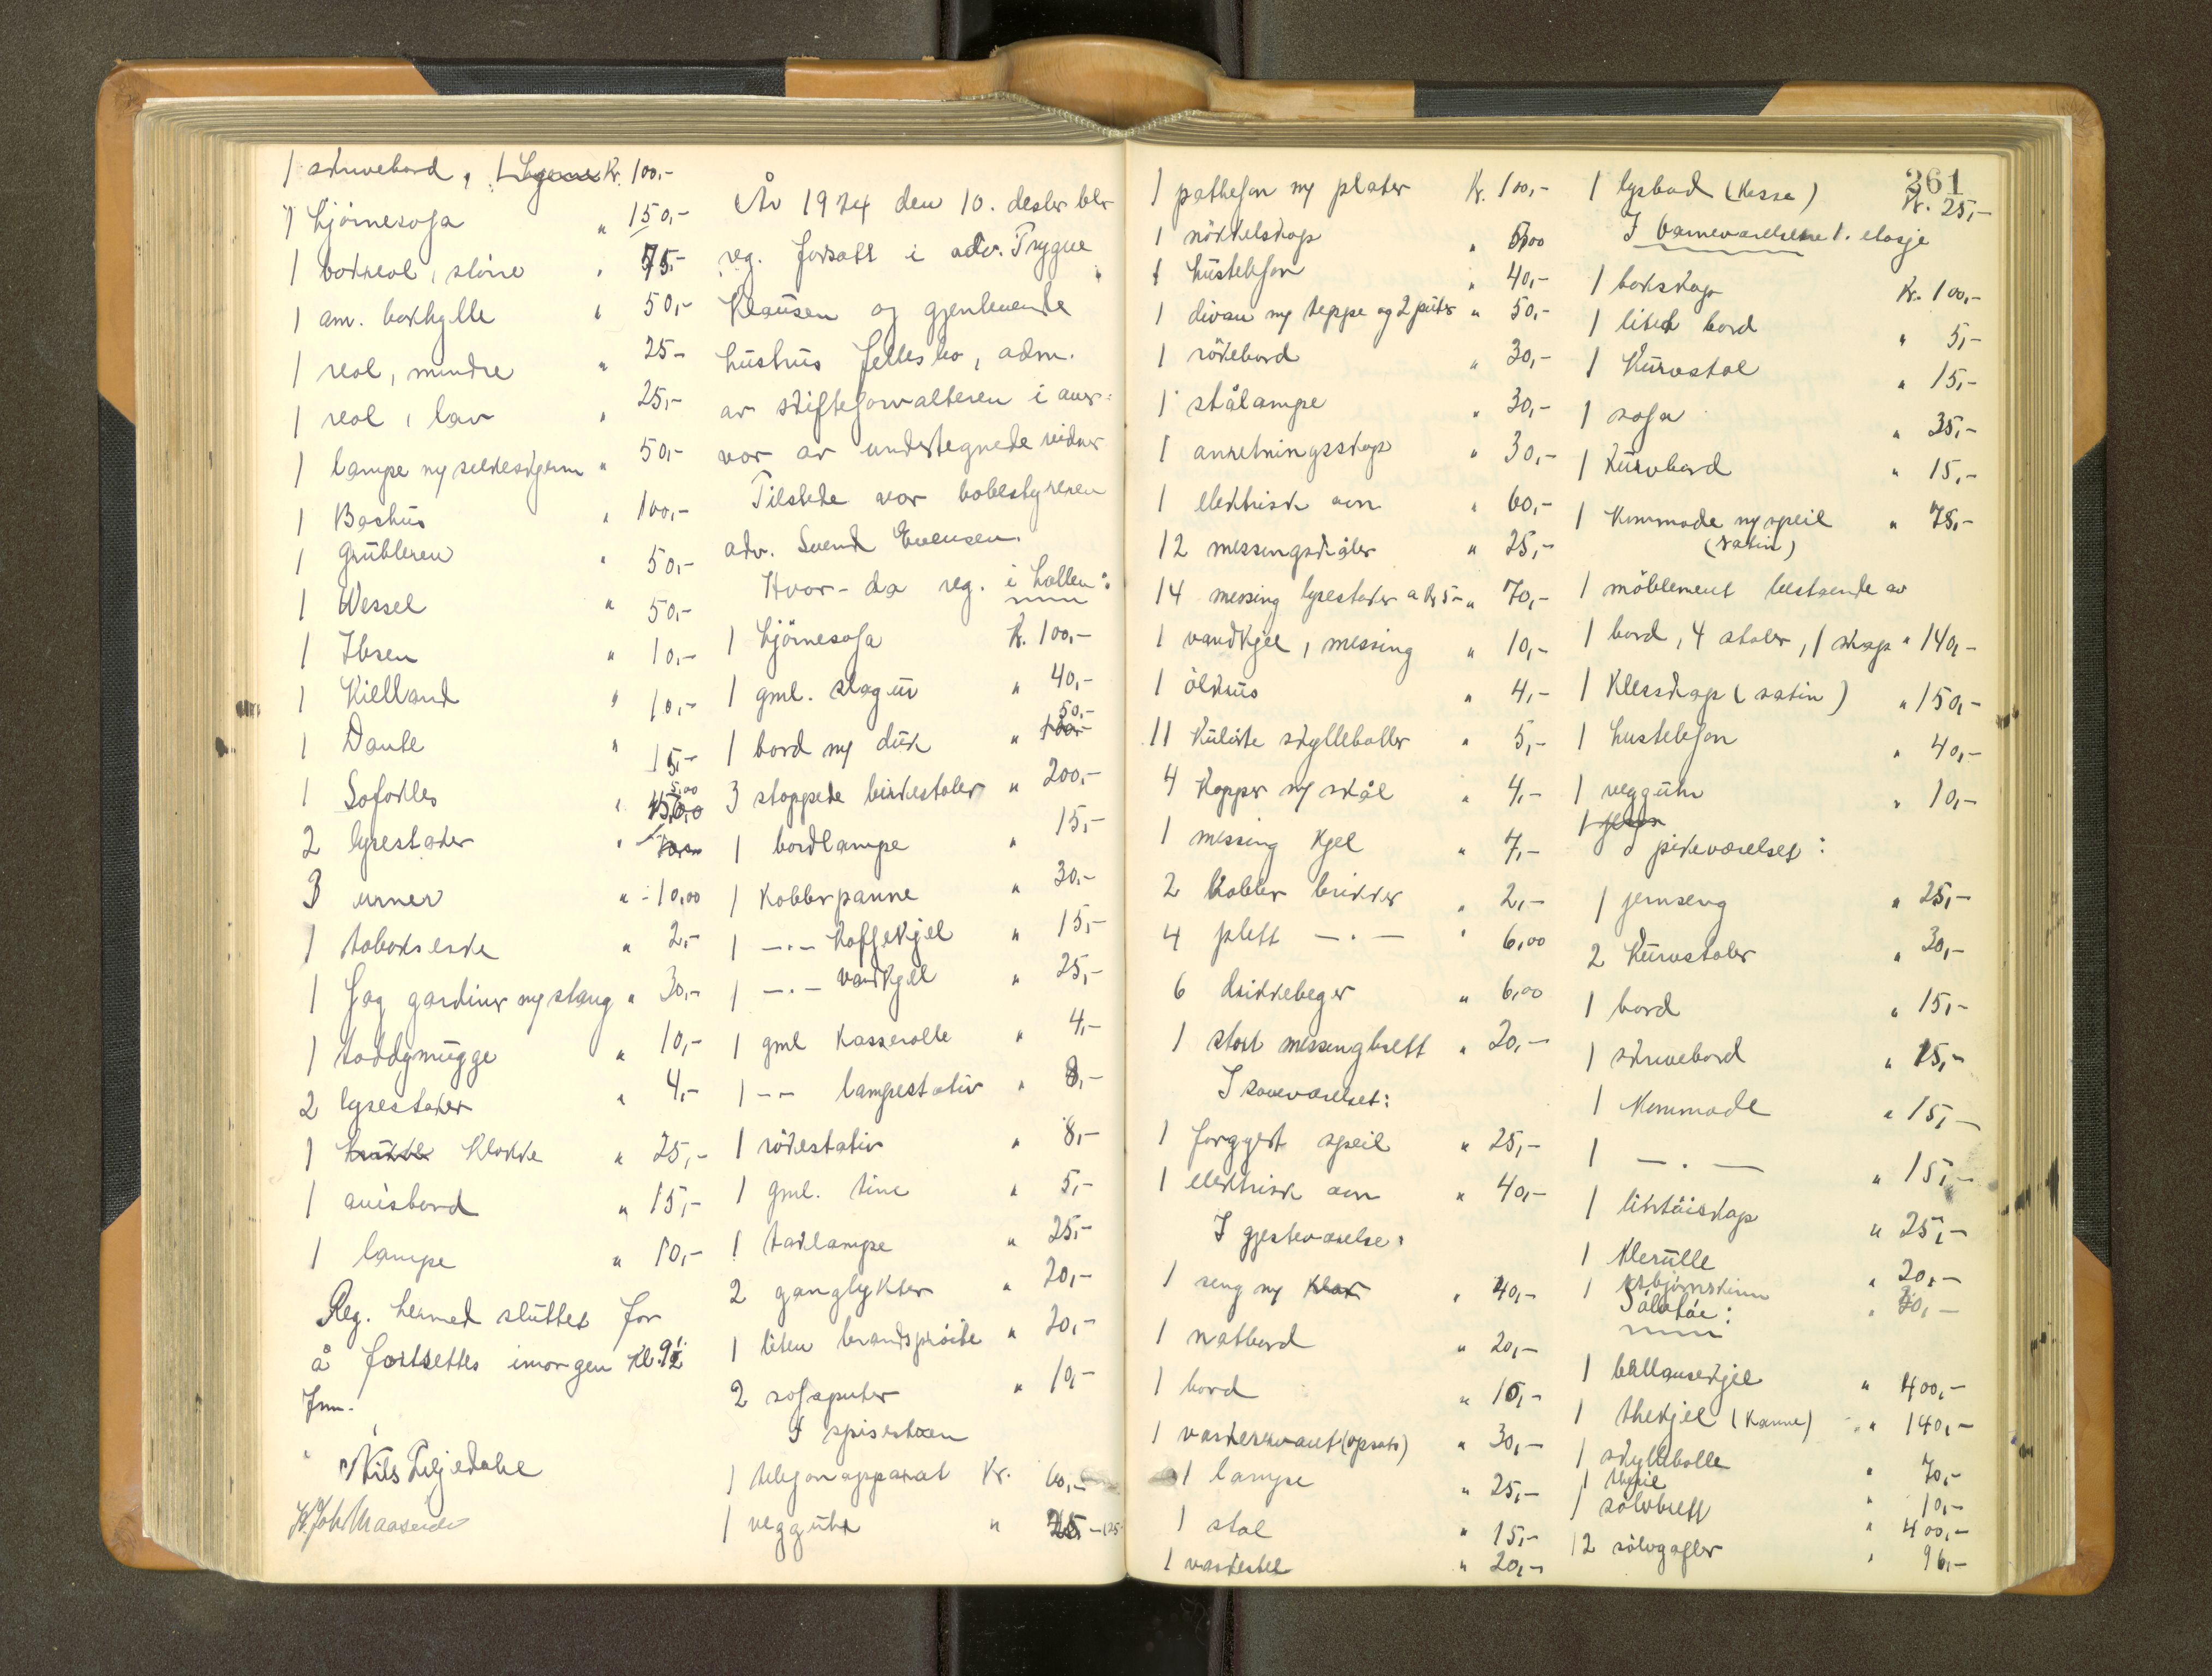 1 skrivebord, Kr. 100,-
1 hjörnesofa " 150,-
1 bokreol, större " 75,-
1 am. bokhylle " 50,-
1 reol, mindre " 25-
1 reol, lav " 25,-
1 lampe m/ silkeskjerm " 50,-
1 Backus " 100,-
1 Grübleren " 50,-
1 Wessel " 50,-
1 Ibsen " 10,-
1 Kielland " 10,-
1 Dante " 15,-
1 Sofokles " 5,00
2 lysestaker "
3 urner " 10,00
1 tobakseske " 2,-
1 fag gardiner m/ stang " 30,-
1 toddymugge " 10,-
2 lysestaker " 4,-
1 Klokke " 25,-
1 avisbord " 15,-
1 lampe " 10,-
Reg. hermed sluttet for
å fortsettes imorgen Kl. 9½
Fmm.
Nils Liljedahl
År 1924 den 10. desbr blev
reg. forsatt i adv. Trygve
Klausen og gjenlevende
hustrus fellesbo, adm.
av skifteforvalteren i over-
vær av undertegnede vidner
Tilstede var bobestyreren
adv. Svend Evensen.
Hvor-da reg. i hallen:
1 hjörnesofa Kr. 100,-
1 gml. slagur " 40,-
1 bord m/ duk " 50,-
3 stoppede birkestoler " 200,-
1 bordlampe " 15,-
1 Kobberpanne " 30,-
1 -.- Kaffekjel " 15,-
1 -.- vandkjel " 25,-
1 gml Kasserolle " 4,-
1 -- lampestativ " 8,-
1 rökestativ " 8,-
1 gml. tine " 5,-
1 taklampe " 25,-
2 ganglykter " 20,-
1 liten brandspröite " 20,-
2 sofaputer " 10,-
I spisestuen
1 telefonapparat Kr. 60,-
1 veggühr " 25,-
261
1 pathefon m/ plater Kr. 100,-
1 nökkelskap "
1 hustelefon " 40,-
1 divan m/ teppe og 2 puter " 50,-
1 rökebord " 30,-
1 stålampe " 30,-
1 anretningsskap " 30,-
1 elektrisk ovn " 60,-
12 messingskåler " 25,-
14 messing lysestaker a Kr 5- " 70,-
1 vandkjel, messing " 10,-
1 ölkrus " 4,-
11 Kulörte skylleboller " 5,-
4 Kopper m/ skål " 4,-
1 messing Kjel " 7,-
2 Kobber brikker " 2,-
4 plett -.- " 6,00
6 drikkebeger " 6,00
1 stort messingbrett " 20,-
I soveværelset:
1 forgyldt speil " 25,-
1 elektrisk ovn " 40,-
I gjesteværelse:
1 seng m/ " 40,-
1 natbord " 20,-
1 bord " 10,-
1 vaskeservant (opsats) " 30,-
1 lampe " 25,-
1 stol " 15,-
1 vaskestel " 20,-
1 lysbad (Kasse) Kr. 25,-
I barneværelsene 1. etasje
1 bokskap Kr. 100,-
1 litet bord " 5,-
1 Kurvstol " 15,-
1 sofa " 35,-
1 Kurvbord " 15,-
1 Kommode m/ speil " 75,-
(satin)
1 möblement bestaende av
1 bord, 4 stoler, 1 skap " 140,-
1 Klesskap (satin) " 150,-
1 hustelefon " 40,-
1 veggühr " 10,-
I pikeværelset:
1 jernseng " 25,-
2 Kurvstoler " 30,-
1 bord " 15,-
1 skrivebord " 15,-
1 Kommode " 15,-
1 -.- " 15,-
1 lintöiskap " 25,-
1 Klerulle " 20,-
1 isbjörnskinn "
Sölvtöi:
1 bullionskjel " 400,-
1 thekjel (Kanne) " 140,-
1 skyllebolle " 70,-
1 thesil " 10,-
1 sölvbrett " 400,-
12 sölvgafler " 96,-